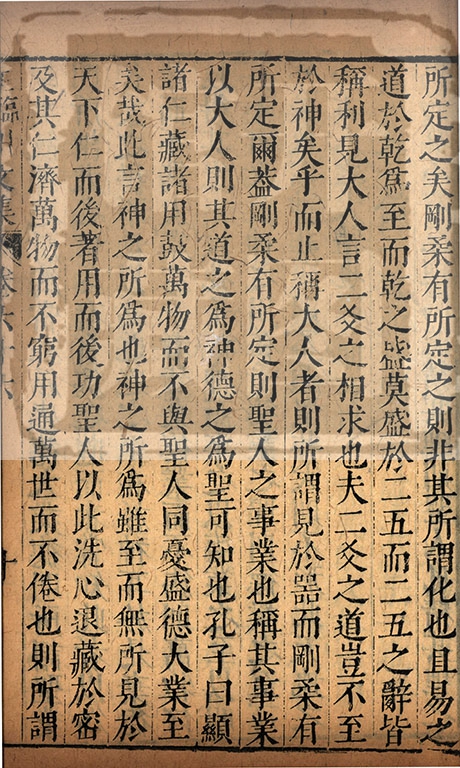 所定之矣剛柔有所定之則非其所謂化也且易之
道於乾爲至而乾之盛莫盛於二五而二五之辭皆
稱利見大人言二爻之相求也夫二爻之道豈不至
於神矣乎而止稱大人者則所謂見於器而剛柔有
所定爾葢剛柔有所定則聖人之事業也稱其事業
以大人則其道之爲神德之爲聖可知也孔子曰顯
諸仁藏諸用鼓萬物而不與聖人同憂盛德大業至
矣哉此言神之所爲也神之所爲雖至而無所見於
天下仁而後著用而後功聖人以此洗心退藏於密
及其仁濟萬物而不窮用通萬世而不倦也則所謂
臨川文集 卷六十六 十